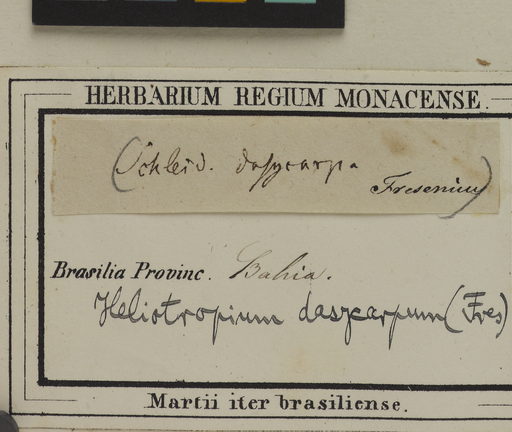 HERBARIUM REGIUM MONACENSE.
(Schleid. dasycarpa
Fresenius)
Brasilia Provinc. Bahia.
Heliotropium dasycarpum (Fres)
Martii iter brasiliense.